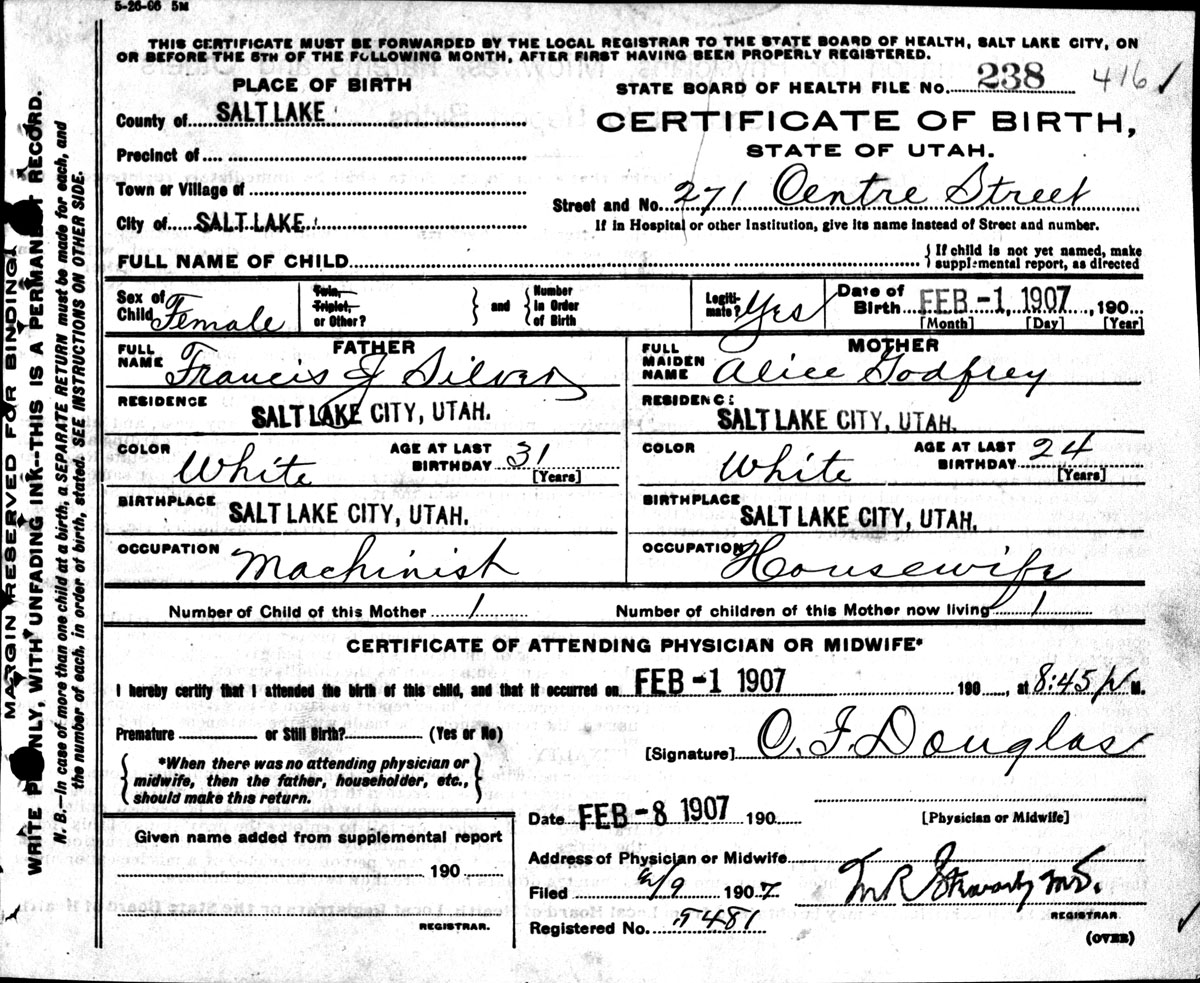 5-26-06 5M
THIS CERTIFICATE MUST BE FORWARDED BY THE LOCAL REGISTRAR TO THE STATE BOARD OF HEALTH, SALT LAKE CITY, ON
OR BEFORE THE 5TH OF THE FOLLOWING MONTH, AFTER FIRST HAVING BEEN PROPERLY REGISTERED.
PLACE OF BIRTH
STATE BOARD OF HEALTH FILE NO. 238 416
County of SALT LAKE
CERTIFICATE OF BIRTH,
STATE OF UTAH.
Precinct of
Town or Village of
Street and No. 271 Centre Street
City of SALT LAKE
If in Hospital or other Institution, give its name instead of Street and number.
FULL NAME OF CHILD
If child is not yet named, make
supplemental report, as directed
Sex of
Child Female
Twin,
Triplet,
or Other?
and
Number
in Order
of Birth
Legiti-
mate? Yes
Date of
Birth FEB -1 1907, 190
[Month] [Day] [Year]
FATHER
FULL
NAME Francis J Silver
RESIDENCE
SALT LAKE CITY, UTAH.
COLOR White
AGE AT LAST
BIRTHDAY 31
[Years]
BIRTHPLACE
SALT LAKE CITY, UTAH.
OCCUPATION Machinist
MOTHER
FULL
MAIDEN
NAME Alice Godfrey
RESIDENCE
SALT LAKE CITY, UTAH.
COLOR White
AGE AT LAST
BIRTHDAY 24
[Years]
BIRTHPLACE
SALT LAKE CITY, UTAH.
OCCUPATION Housewife
Number of Child of this Mother 1
Number of children of this Mother now living 1
CERTIFICATE OF ATTENDING PHYSICIAN OR MIDWIFE*
I hereby certify that I attended the birth of this child, and that it occurred on FEB -1 1907 190, at 8:45 P M.
Premature or Still Birth? (Yes or No)
[Signature] C. F. Douglas
*When there was no attending physician or
midwife, then the father, householder, etc.,
should make this return.
Date FEB -8 1907 190
[Physician or Midwife]
Given name added from supplemental report
190
REGISTRAR.
Address of Physician or Midwife
Filed 2/9 1907
Registered No. 5481
REGISTRAR.
(OVER)
MARGIN RESERVED FOR BINDING
WRITE PLAINLY, WITH UNFADING INK--THIS IS A PERMANENT RECORD.
N. B.—In case of more than one child at a birth, a SEPARATE RETURN must be made for each, and
the number of each, in order of birth, stated. SEE INSTRUCTIONS ON OTHER SIDE.